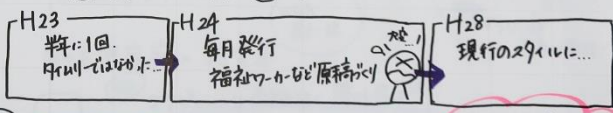 H23
半年に1回.
タイムリーではなかった…
H24
毎月発行
福祉ワーカーなど原稿づくり
大変!
H28
現行のスタイルに…